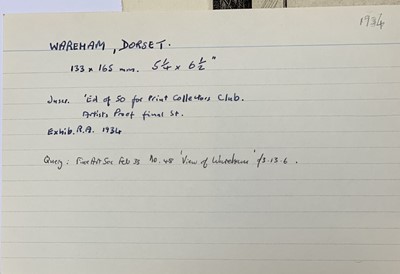 1934
WAREHAM, DORSET.
133 x 165 mm. 5¼ x 6½"
Inscr. 'Ed of 50 for Print Collectors Club.
Artists Proof final St.
Exhib. R.A. 1934
Query: Fine Art Soc Feb 35 No. 48 'View of Wareham' £3.13.6.